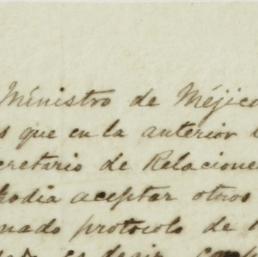 Ministro de Méjico
s que en la anterior
cretario de Relacione
podia aceptar otros
nado protocolo de
es decir